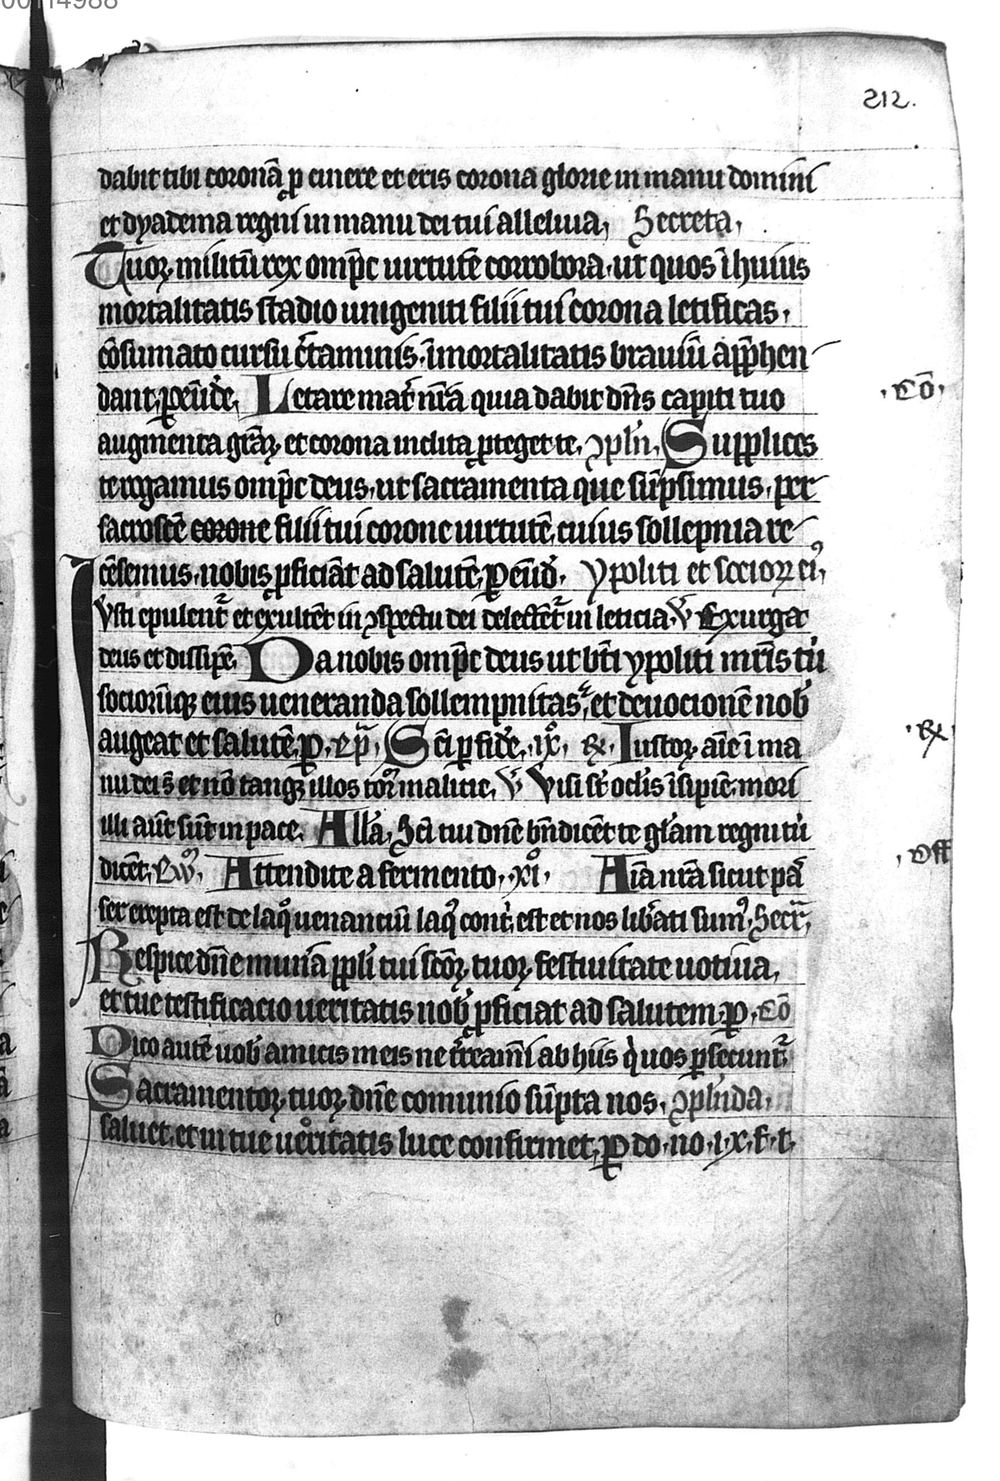 212.
dabit tibi coronā ꝑ cinere et eris corona glorie in manu domini
et dyadema regni in manu dei tui alleluia, Secreta,
Tuoꝝ militū rex omp̄c uirtutē corrobora, ut quos ī huius
mortalitatis stadio unigeniti filii tui corona letificas,
cōsumato cursu c̄taminis, īmortalitatis brauiū app̄hen
dant, ꝑ eūde, Letare mat̄ nr̄a quia dabit dn̄s capiti tuo
·Cō·
augmenta gr̄aꝝ, et corona inclita ꝓteget te, ↄpln̄, Supplices
te rogamus omp̄c deus, ut sacramenta que sūpsimus, per
sacroscē corone filii tui corone uirtutē, cuius sollepnia re
cēsemus, nobis ꝓficiāt ad salutē, ꝑ eūd̄. ypoliti et socioꝝ ei᷒,
Iusti epulent᷑ et exultēt in ↄspectu dei delectēt᷑ in leticia. V̄ Exurgat
deus et dissipē, Da nobis omp̄c deus ut bt̄i ypoliti mr̄is tū
sociorūqꝫ eius ueneranda sollempnitas, et deuocionē nob̄
augeat et salutē, ꝑ, Ep̄, Sc̄i ꝑ fidē, ·ix·, ℞ Iustoꝝ aīe ī ma
·℞·
nu dei s̄ et nō tangꝫ illos tor̄ malicie, V̄ Visi st̄ oc̄lis īsipiē, mori
illi aūt sūt in pace. All̄a, Sc̄i tui dn̄e bn̄dicēt te gl̄am regni tū
dicēt, Ew̄, Attendite a fermento, ·xi· Aīa nr̄a sicut pas
·Off
ser erepta est de laq̊ uenanciū laq̄ cont̄, est et nos lib̄ati sum᷒, Secr̄,
Respice dn̄e munā ppl̄i tui sc̄oꝝ tuoꝝ festiuitate uotiua,
et tue testificacio ueritatis nob̄ ꝓficiat ad salutem, ꝑ, Cō
Dico autē uob̄ amicis meis ne t̄reamī ab hiis q̇ uos ꝑsecunt᷑
Sacramentoꝝ tuoꝝ dn̄e comunio sūpta nos, ↄpln̄da,
saluet, et in tue ueritatis luce confirmet, ꝑ do· no· i·x· f· t·